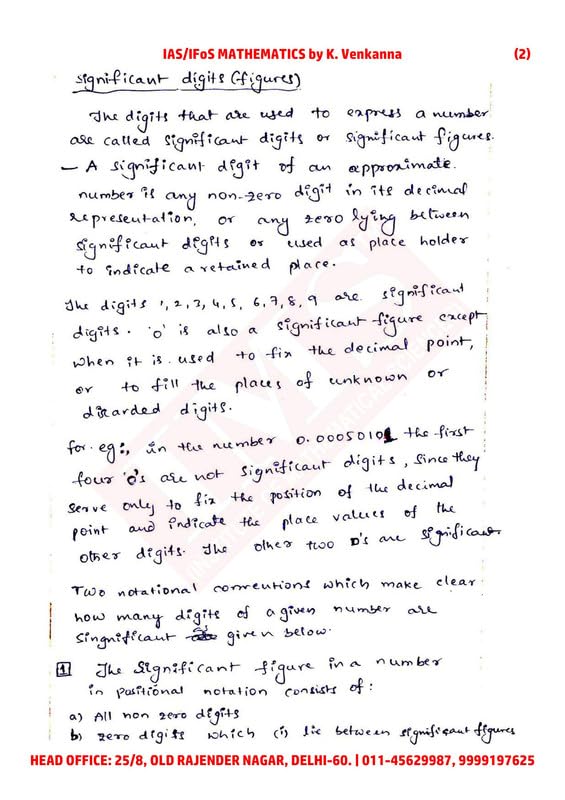 IAS/IFoS MATHEMATICS by K. Venkanna (2)
significant digits (figures)
The digits that are used to express a number
are called significant digits or significant figures.
— A significant digit of an approximate.
number is any non-zero digit in its decimal
representation, or any zero lying between
significant digits or used as place holder
to indicate a retained place.
The digits 1, 2, 3, 4, 5, 6, 7, 8, 9 are significant
digits. 'o' is also a significant figure except
when it is used to fix the decimal point,
or to fill the places of unknown or
discarded digits.
for eg:, in the number 0.00050101 the first
four 'o's are not significant digits, since they
serve only to fix the position of the decimal
point and indicate the place values of the
other digits. The other two 0's are significant
Two notational conventions which make clear
how many digits of a given number are
singnificant given below.
1 The significant figure in a number
in positional notation consists of:
a) All non zero digits
b) zero digits which (i) lie between significant figures
HEAD OFFICE: 25/8, OLD RAJENDER NAGAR, DELHI-60. | 011-45629987, 9999197625